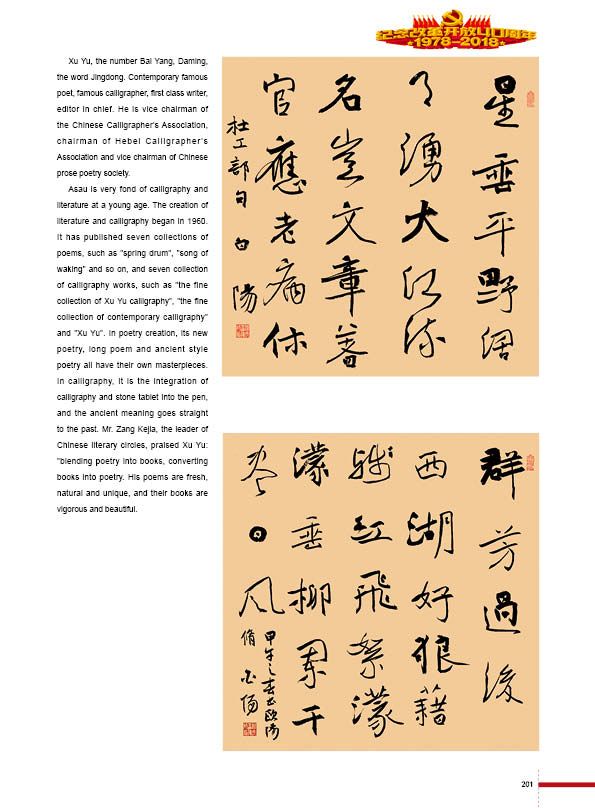 纪念改革开放40周年
★1978-2018★
Xu Yu, the number Bai Yang, Daming,
the word Jingdong. Contemporary famous
poet, famous calligrapher, first class writer,
editor in chief. He is vice chairman of
the Chinese Calligrapher's Association,
chairman of Hebei Calligrapher's
Association and vice chairman of Chinese
prose poetry society.
Asau is very fond of calligraphy and
literature at a young age. The creation of
literature and calligraphy began in 1960.
It has published seven collections of
poems, such as "spring drum", "song of
waking" and so on, and seven collection
of calligraphy works, such as "the fine
collection of Xu Yu calligraphy", "the fine
collection of contemporary calligraphy"
and "Xu Yu". In poetry creation, its new
poetry, long poem and ancient style
poetry all have their own masterpieces.
In calligraphy, it is the integration of
calligraphy and stone tablet into the pen,
and the ancient meaning goes straight
to the past. Mr. Zang Kejia, the leader of
Chinese literary circles, praised Xu Yu:
"blending poetry into books, converting
books into poetry. His poems are fresh,
natural and unique, and their books are
vigorous and beautiful.
星垂平野闊
月湧大江流
名豈文章著
官應老病休
杜工部句 白陽
群芳過後
西湖好狼籍
殘紅飛絮濛
濛垂柳闌干
盡日風
甲午之春書歐陽
脩 白陽
201